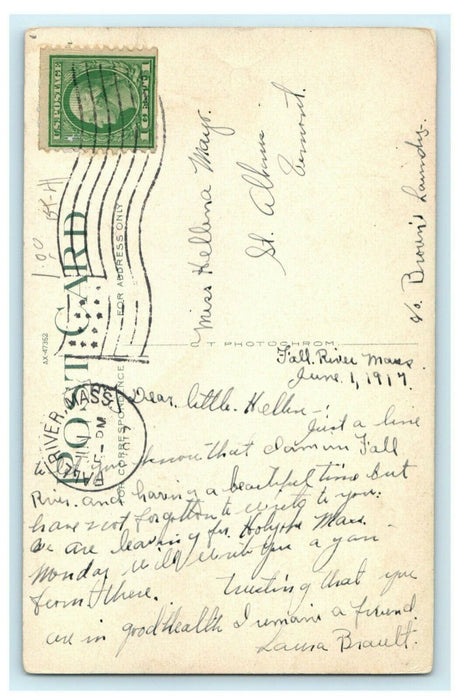 U.S. POSTAGE
1.00
POST CARD
FOR CORRESPONDENCE
FOR ADDRESS ONLY
AX-47362
C T PHOTOCHROM
FALL RIVER, MASS.
5 - PM
1917
Miss Hellena Mayo.
St. Albans
Vermont.
c/o Brown's Laundry.
Fall River Mass
June 1, 1917
Dear little Hellen -
Just a line
to let you know that I am in Fall
River and having a beautiful time but
have not forgotten to write to you.
We are leaving for Holyoke Mass.
Monday will write you a gan
from there. trusting that you
are in good health I remain a friend
Laura Brault.